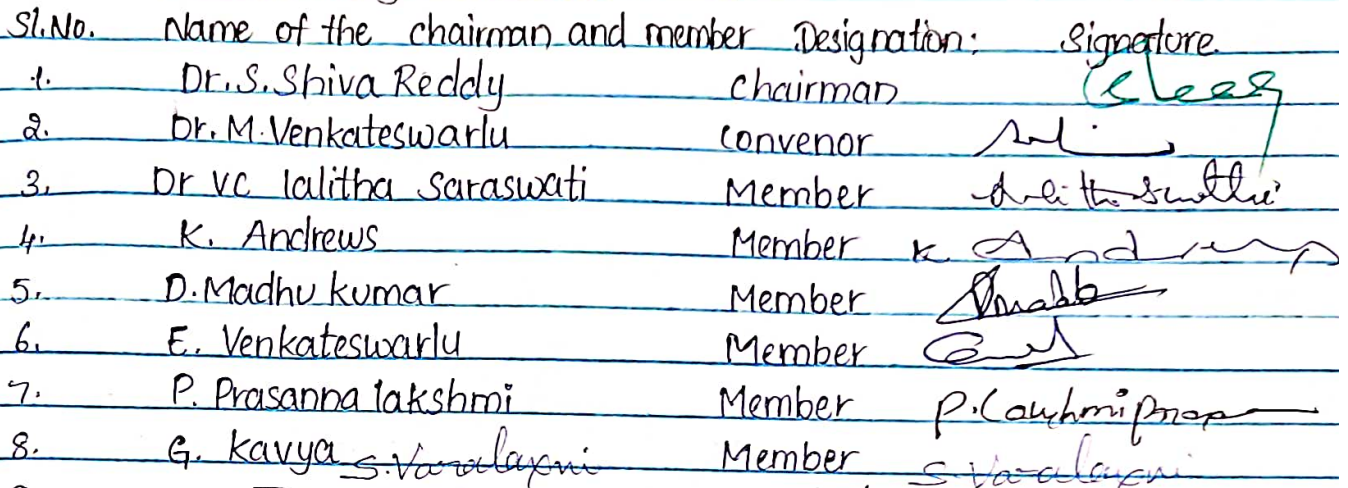 Sl.No. Name of the chairman and member Designation: Signature.
1. Dr.S.Shiva Reddy Chairman
2. Dr.M.Venkateswarlu Convenor
3. Dr VC lalitha Saraswati Member
4. K. Andrews Member K Andrews
5. D.Madhu kumar Member
6. E. Venkateswarlu Member
7. P. Prasanna lakshmi Member
8. G. Kavya S.Varalaxmi Member S Varalaxmi